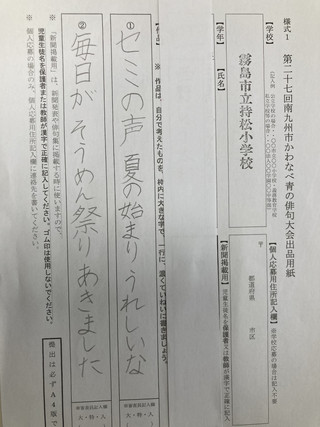 様式1
第二十七回南九州市かわなべ青の俳句大会出品用紙
【学校】
霧島市立持松小学校
【個人応募用住所記入欄】
〒
都道府県
市区
【学年】
【氏名】
【新聞掲載用】
【作品】
※ 作品は、自分で考えたものを、枠内に大きな字で、一行に、濃くていねいに書きましょう。
①
セミの声 夏の始まり うれしいな
審査従員記入欄
大・特・入
②
毎日が そうめん祭り あきました
大・特・入
※ 「新聞掲載用」は、新聞発表や俳句集に掲載する時に使いますので、
児童生徒名を保護者または教師が漢字で正確に記入してください。ゴム印は使用しないでください。
※ 個人応募の場合のみ、個人応募用住所記入欄に連絡先を書いてください。
提出は必ずA4版で